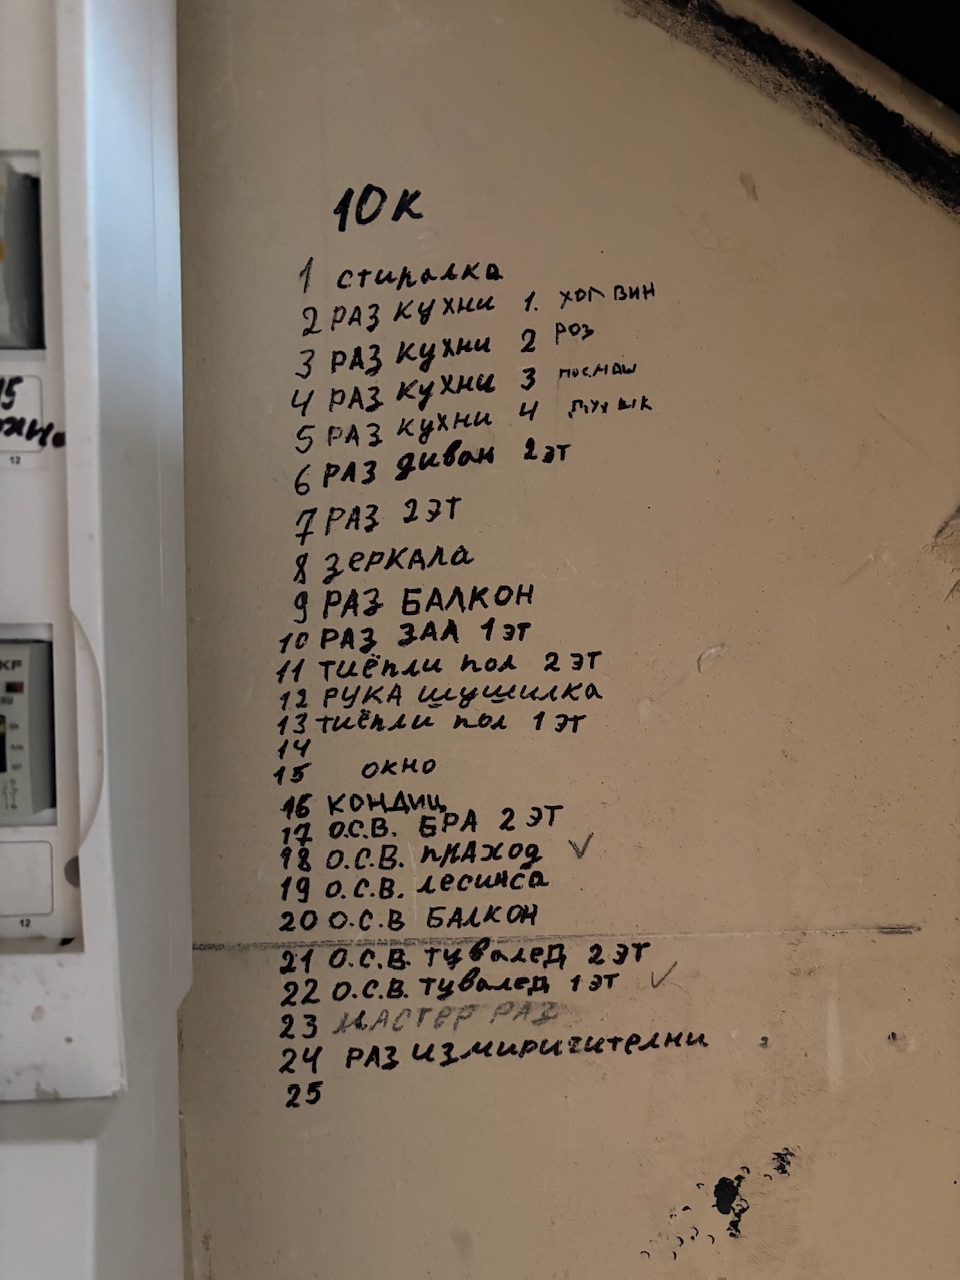 10К
1 стиралка
2 РАЗ КУХНИ 1. ХОЛ ВИН
3 РАЗ КУХНИ 2 РОЗ
4 РАЗ КУХНИ 3 посмаш
5 РАЗ КУХНИ 4
6 РАЗ диван 2 эт
7 РАЗ 2 ЭТ
8 ЗЕРКАЛА
9 РАЗ БАЛКОН
10 РАЗ ЗАЛ 1 эт
11 тиёпли пол 2 эт
12 РУКА шушилка
13 тиёпли пол 1 эт
14
15 окно
16 КОНДИЦ
17 О.С.В. БРА 2 ЭТ
18 О.С.В. пРАХод
19 О.С.В. лесинса
20 О.С.В БАЛКОН
21 О.С.В. тувалед 2 эт
22 О.С.В. тувалед 1 эт
23 МАСТЕР РАЗ
24 РАЗ измиричителни
25
15
12
KF
12